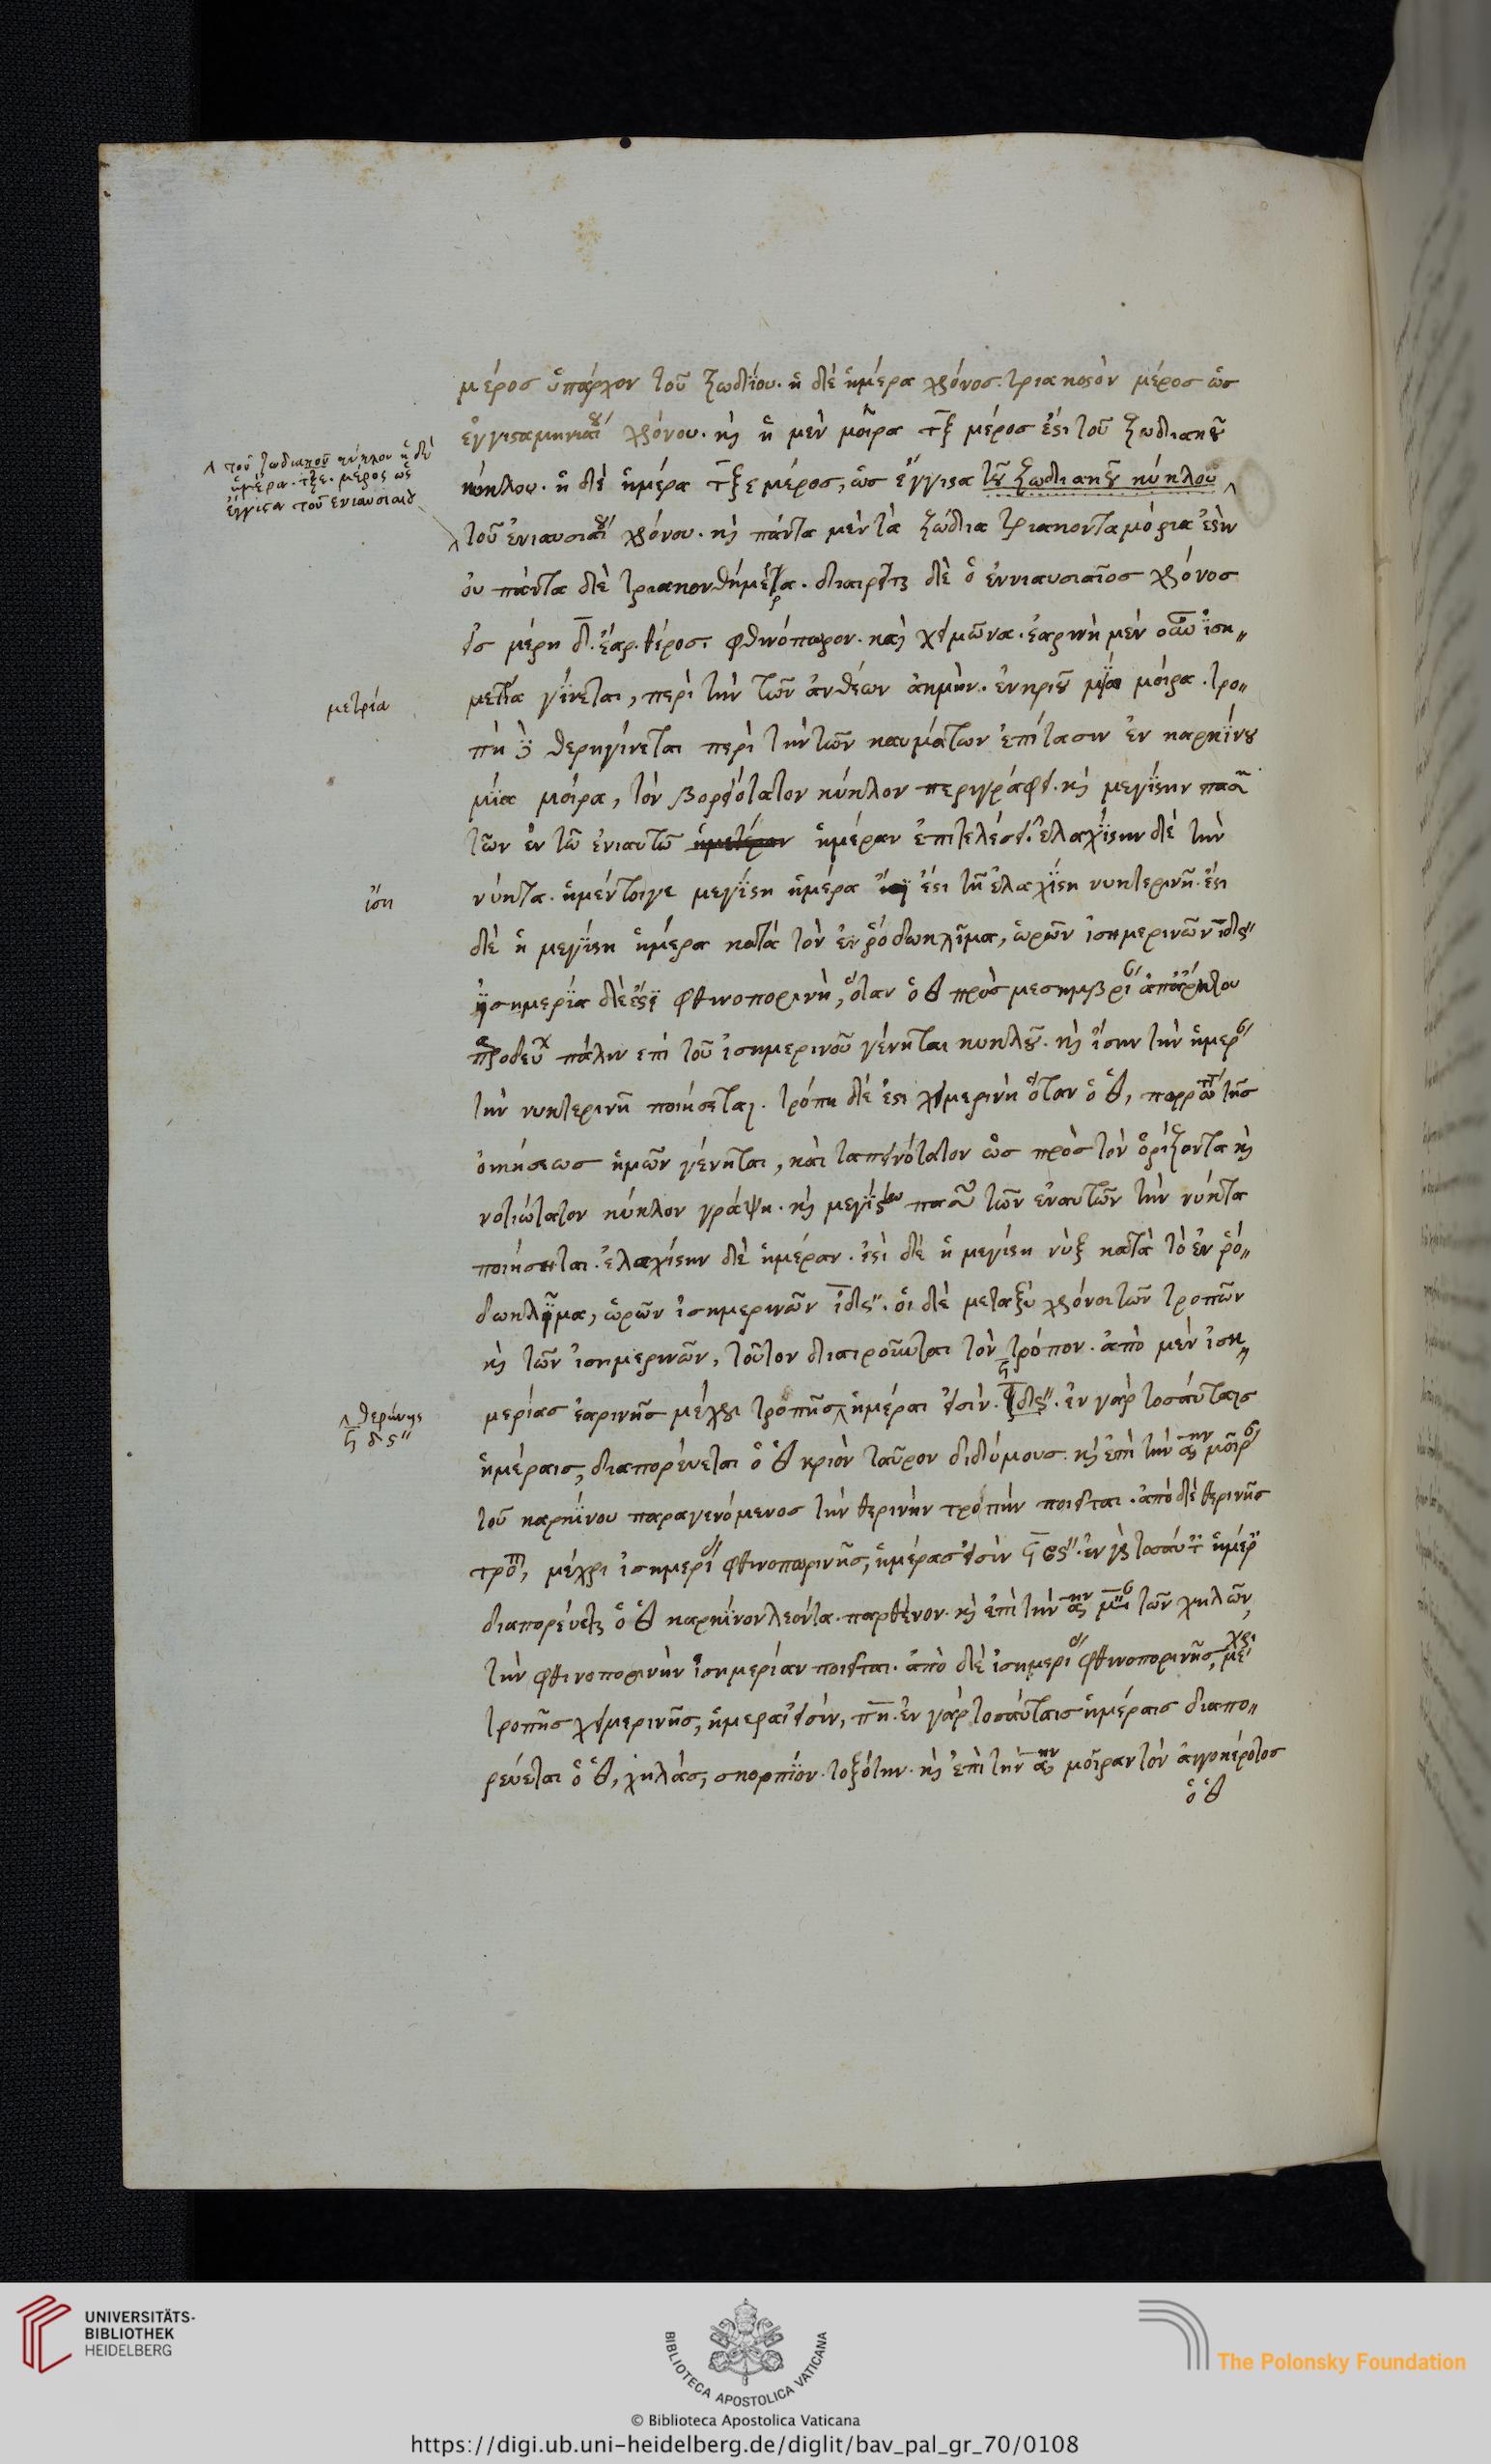 μέρος ὑπάρχον τοῦ ζωδίου. ἡ δὲ ἡμέρα χρόνος. τριακοςὸν μέρος ὡς
ἔγγιςα μηνιαίου χρόνου. καὶ ἡ μὲν μοῖρα τξ μέρος ἐςι τοῦ ζωδιακοῦ
κύκλου. ἡ δὲ ἡμέρα τξε μέρος, ὡς ἔγγιςα τοῦ ζωδιακοῦ κύκλου
τοῦ ἐνιαυσιαίου χρόνου. καὶ πάντα μὲν τὰ ζώδια τριακονταμόρια ἐςὶν
οὐ πάντα δὲ τριακονθήμερα. διαιρεῖται δὲ ὁ ἐννιαυσιαῖος χρόνος
εἰς μέρη δ. ἔαρ. θέρος. φθινόπωρον. καὶ χειμῶνα. ἐαρινὴ μὲν οὖν ἰση
μερία γίνεται, περὶ τὴν τῶν ἀνθέων ἀκμὴν. ἐν κριοῦ μία μοίρα. τρο
πὴ θερηγίνεται περὶ τὴν τῶν καυμάτων ἐπίτασιν ἐν καρκίνου
μία μοίρα, τὸν βορειότατον κύκλον περιγράφει. καὶ μεγίςην πασῶν
τῶν ἐν τῶ ἐνιαυτῶ ἡμέραν ἐπιτελέσει. ἐλαχίςην δὲ τὴν
νύκτα. ἡμέντοιγε μεγίςη ἡμέρα ἐςι τῆ ἐλαχίςη νυκτερινῆ. ἐςι
δὲ ἡ μεγίςη ἡμέρα κατὰ τὸν ἐν ῥόδωκλῖμα, ὡρῶν ἰσημερινῶν ιδς"
ἰσημερία δὲ ἐςι φθινοπορινὴ, ὅταν ὁ πρὸς μεσημβρίαν ἀπὸ ἄρκτου
πάλιν ἐπὶ τοῦ ἰσημερινοῦ γένηται κυκλοῦ. καὶ ἴσην τὴν ἡμεραν
τὴν νυκτερινῆ ποιήσεται. τρόπη δὲ ἐςι χειμερινὴ ὅταν ὁ, πορρωτ τῆς
οἰκήσεως ἡμῶν γένηται, καὶ ταπεινότατον ὡς πρὸς τὸν ὁρίζοντα καὶ
νοτιώτατον κύκλον γράψη. καὶ μεγίςην πασῶν τῶν ἐναυτῶν τὴν νύκτα
ποιήσηται. ἐλαχίςην δὲ ἡμέραν. ἐςὶ δὲ ἡ μεγίςη νὺξ κατὰ τὸ ἐν ῥό
δωκλῖμα, ὡρῶν ἰσημερινῶν ιδς". οἱ δὲ μεταξὺ χρόνοι τῶν τροπῶν
καὶ τῶν ἰσημερινῶν, τοῦτον διαιροῦνται τὸν τρόπον. ἀπὸ μὲν ἰση
μερίας ἐαρινῆς μέχρι τροπῆς ἡμέραι εἰσίν. δς". ἐν γὰρ τοσαύταις
ἡμέραις, διαπορέυεται ὁ κριὸν ταῦρον διδύμους. καὶ ἐπὶ τὴν αην μοῖραν
τοῦ καρκίνου παραγενόμενος τὴν θερινὴν τροπὴν ποιεῖται. ἀπὸ δὲ θερινῆς
τροπ, μέχρι ἰσημερίας φθινοπωρινῆς, ἡμέρας εἰσὶν. ἐν γὰρ τοσάυτ ἡμέρ
διαπορέυεται ὁ καρκίνον λέοντα. παρθένον. καὶ ἐπὶ τὴν αην τῶν χηλῶν,
τὴν φθινοπορινὴν ἰσημερίαν ποιεῖται. ἀπὸ δὲ ἰσημερίας φθινοπορινῆς, μέχρι
τροπῆς χειμερινῆς, ἡμεραι εἰσὶν, πη. ἐν γὰρ τοσάυταις ἡμέραις διαπο
ρεύεται ὁ, χηλὰς, σκορπίον. τοξότην. καὶ ἐπὶ τὴν αην μοῖραν τὸν ἀιγοκέροτος
^ τοῦ ζωδιακοῦ κύκλου ἡ δὲ
ἡμέρα. τξε. μέρος ὡς
ἔγγιςα τοῦ ἐνιαυσιαίου
μετρία
ἴση
^ θερίνης
UNIVERSITÄTS-
BIBLIOTHEK
HEIDELBERG
BIBLIOTECA APOSTOLICA VATICANA
© Biblioteca Apostolica Vaticana
The Polonsky Foundation
https://digi.ub.uni-heidelberg.de/diglit/bav_pal_gr_70/0108